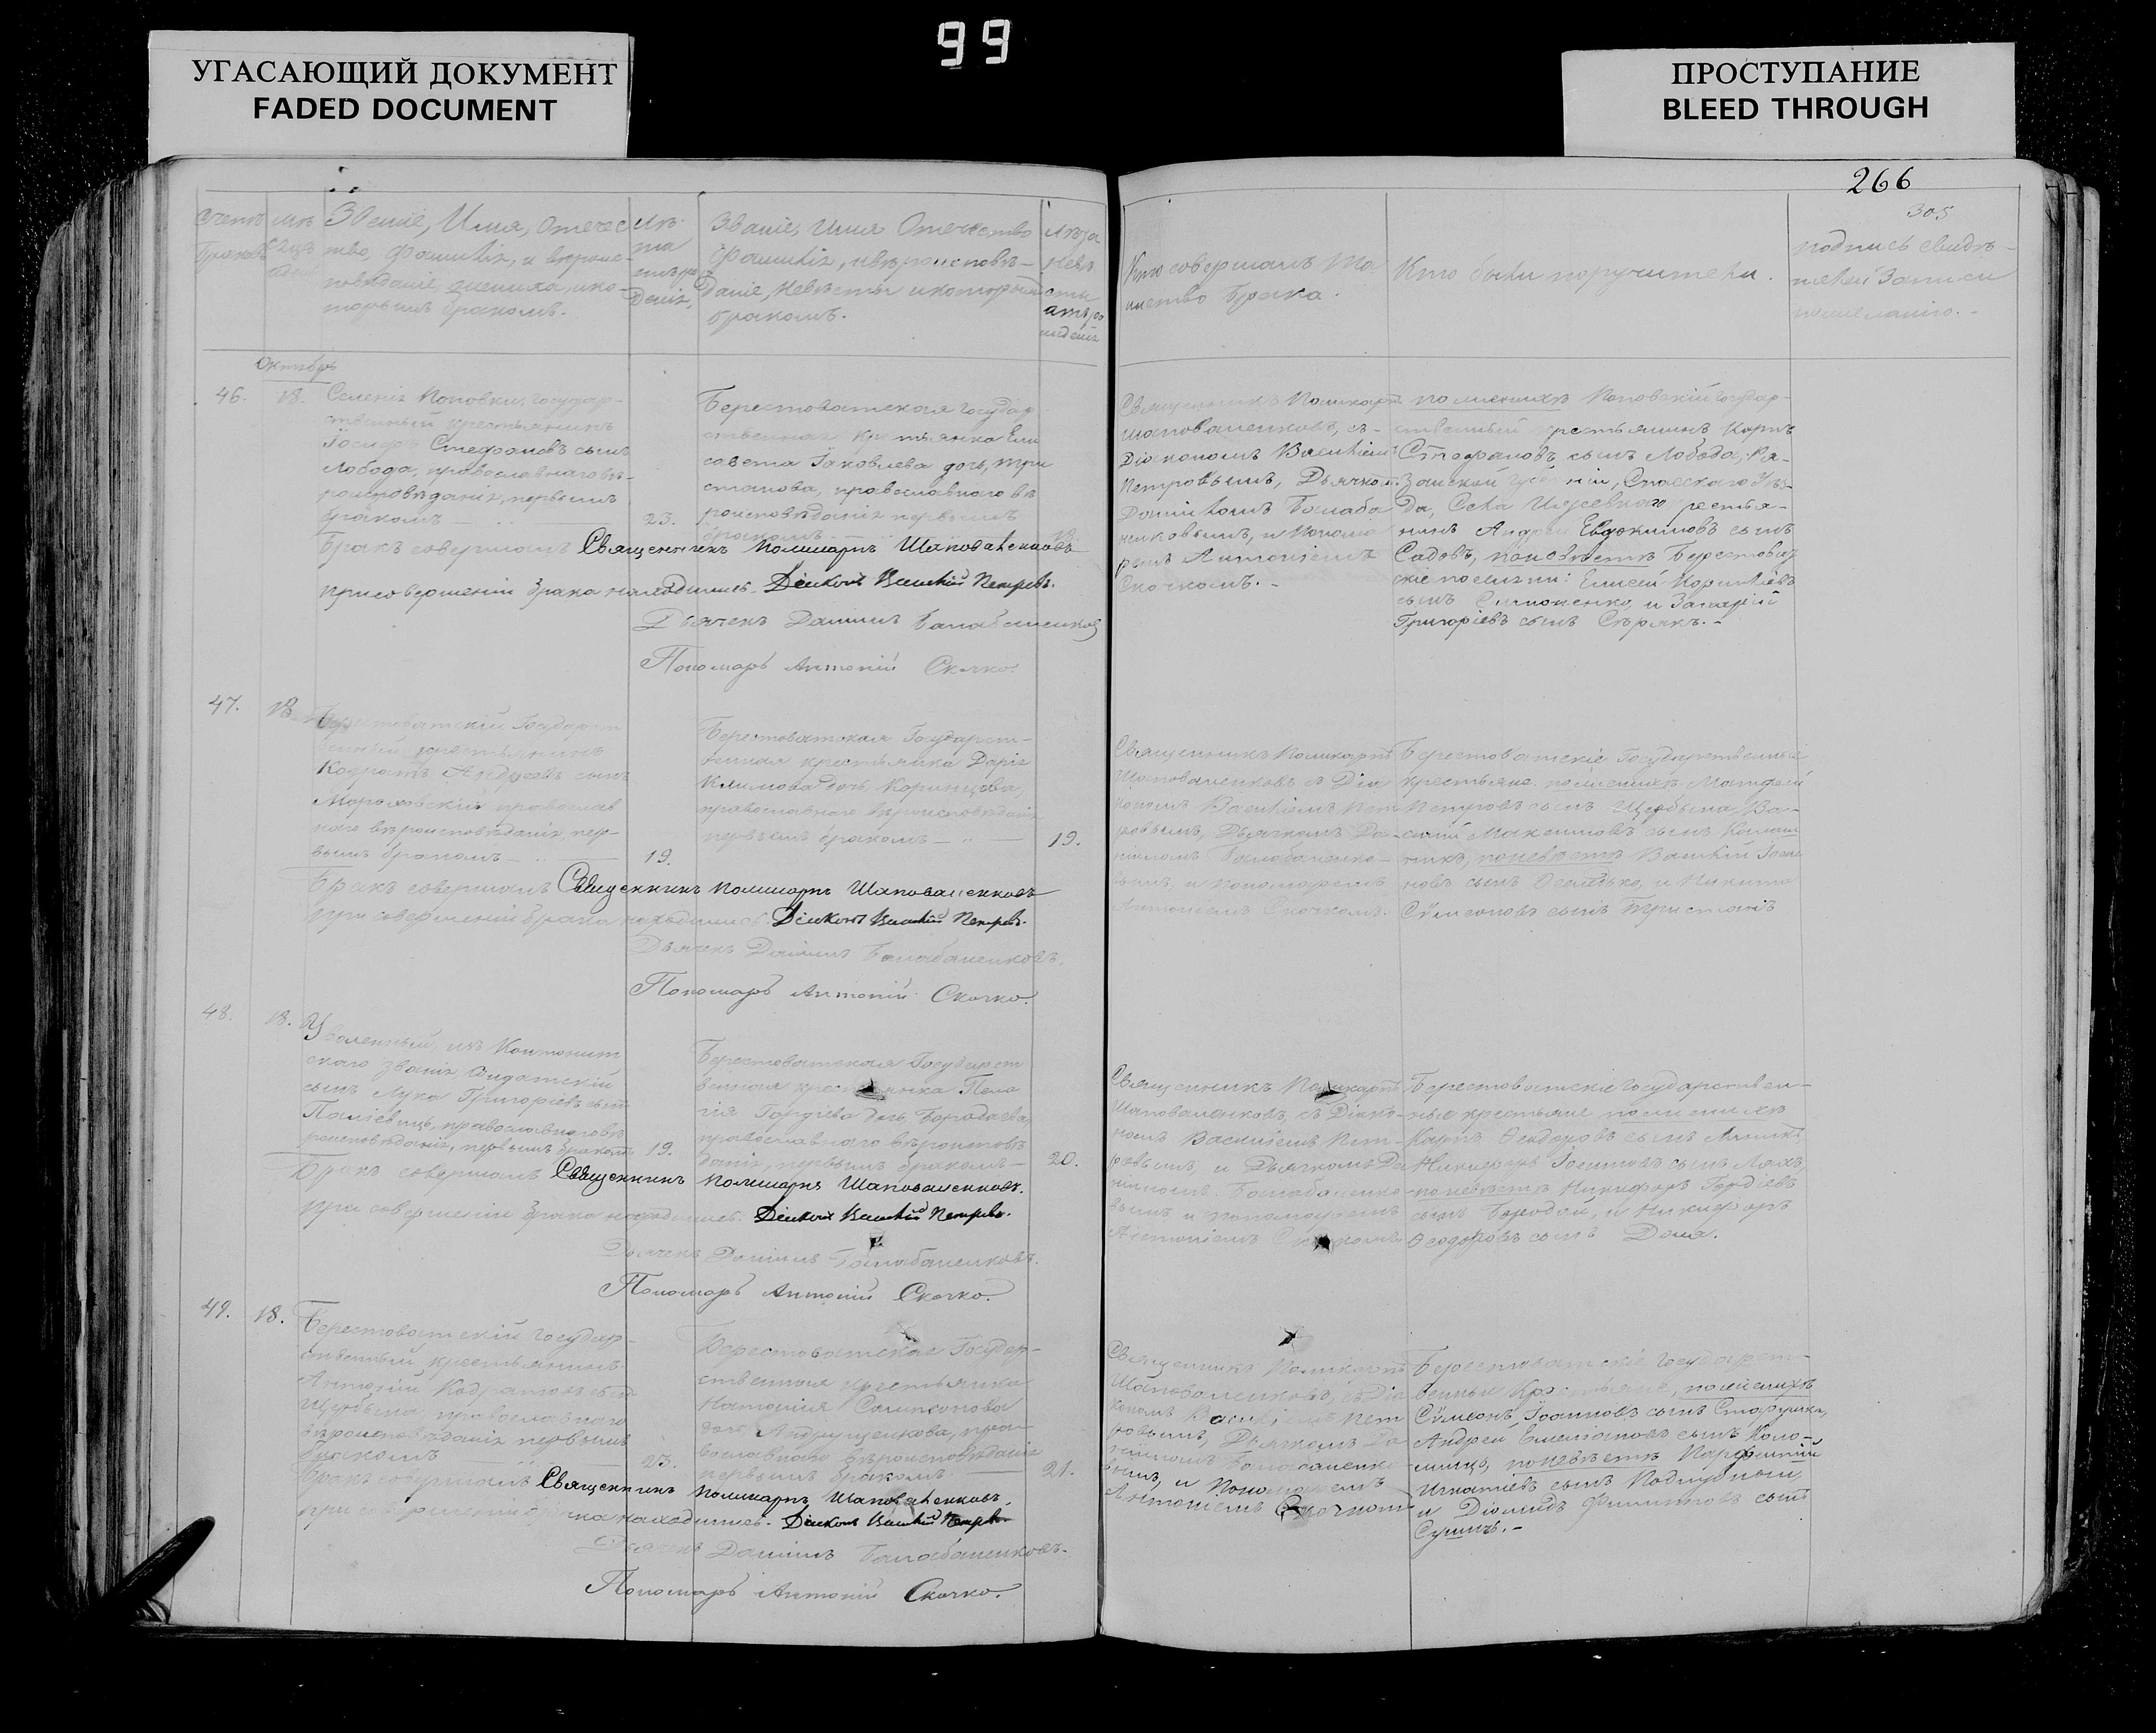 99
УГАСАЮЩИЙ ДОКУМЕНТ
FADED DOCUMENT
ПРОСТУПАНИЕ
BLEED THROUGH
266
305
Званіе, Имя, Отечес
тво, Фамилія, и вѣроис-
повѣданіе, жениха, и ко-
торымъ бракомъ.
Званіе, Имя Отечество
Фамилія, и вѣроисповѣ-
даніе, Невѣсты и которымъ
бракомъ.
Кто совершалъ Та
инство Брака.
Кто были поручители.
подпись свидѣ-
телей Записи
по желанію.
Октябрь
46.
18.
Селенія Поповки, Государ-
ственный крестьянинъ
Іосифъ Стефановъ сынъ
Лобода, православнаго вѣ-
роисповѣданія, первымъ
бракомъ
23.
Берестоватская Государ
ственная крестьянка Ели
савета Іаковлева дочь, Три
станова, православнаго вѣ
роисповѣданія первымъ
бракомъ
Священникъ Поликарпъ
Шаповаленковъ, съ
Діакономъ Василіемъ
Петровымъ, Дьячкомъ
Даниіломъ Балаба
ненковымъ, и Понома
ремъ Антоніемъ
Скочкомъ.
по женихѣ Поповскій Государ-
ственный крестьянинъ Карпъ
Стефановъ сынъ Лобода, Ря-
занской Губерніи, Спасскаго Уѣз-
да, Села Ижевскаго крестья-
нинъ Андрей Евдокимовъ сынъ
Садовъ, по невѣстѣ Берестоват
скіе поселяни: Елисей Корниліевъ
сынъ и Захарій
Григоріевъ сынъ Сѣрякъ.
Бракъ совершалъ Священникъ Поликарпъ Шаповаленковъ
при совершеніи брака находились. Діаконъ Василій Петровъ.
Дьячекъ Даніилъ Балабаненковъ
Пономарь Антоній Скочко.
47.
18
Берестоватскій Государст
венный крестьянинъ
Кодратъ Андреевъ сынъ
православ
наго вѣроисповѣданія, пер-
вымъ бракомъ
19.
Берестоватская Государст-
венная крестьянка Дарія
Климова дочь Коринцова,
православнаго вѣроисповѣданія
первымъ бракомъ
19.
Священникъ Поликарпъ
Шаповаленковъ съ Діа
кономъ Василіемъ Пет
ровымъ, Дьячкомъ Да-
ніиломъ Балабаненко-
вымъ, и пономаремъ
Антоніемъ Скочкомъ.
Берестоватскіе Государственные
крестьяне по женихѣ Матфей
Петровъ сынъ Щербына, Ва-
силій Максимовъ сынъ
по невѣстѣ Василій
новъ сынъ и Никита
Сѵмеоновъ сынъ Тристанъ
Бракъ совершалъ Священникъ Поликарпъ Шаповаленковъ
при совершеніи брака находились. Діаконъ Василій Петровъ.
Дьячекъ Даніилъ Балабаненковъ.
Пономарь Антоній Скочко.
48.
18.
Уволенный, изъ Кантонист
скаго званія Солдатскій
сынъ Лука Григоріевъ сынъ
православнаго вѣ
роисповѣданія, первымъ бракомъ
19.
Берестоватская Государст
венная крестьянка Пела
гія Гордіева дочь Бородаева,
православнаго вѣроисповѣ
данія, первымъ бракомъ
20.
Священникъ Поликарпъ
Шаповаленковъ, съ Діако-
номъ Василіемъ Пет-
ровымъ, и Дьячкомъ Да
ніиломъ Балабаненко
вымъ и пономаремъ
Антоніемъ Скочкомъ
Берестоватскіе Государствен-
ные крестьяне по женихѣ
Карпъ Ѳеодоровъ сынъ
Никифоръ сынъ Ляхъ,
по невѣстѣ Никифоръ Гордіевъ
сынъ Бородай, и Никифоръ
Ѳеодоровъ сынъ
Бракъ совершалъ Священникъ Поликарпъ Шаповаленковъ.
при совершеніи брака находились. Діаконъ Василій Петровъ.
Дьячекъ Даніилъ Балабаненковъ.
Пономарь Антоній Скочко.
49.
18.
Берестоватскій Государ-
ственный крестьянинъ
Антоній Кодратовъ сынъ
Щербына православнаго
вѣроисповѣданія первымъ
бракомъ
23.
Берестоватская Государ-
ственная крестьянка
Наталія
дочь Андрущенкова, пра-
вославнаго вѣроисповѣданія
первымъ бракомъ
21.
Священникъ Поликарпъ
Шаповаленковъ, съ Діа
кономъ Василіемъ Пет
ровымъ, Дьячкомъ Да
ніиломъ Балабаненко
вымъ, и Пономаремъ
Антоніемъ Скочкомъ
Берестоватскіе Государст-
венные Крестьяне, по женихѣ
Сѵмеонъ Іоанновъ сынъ
Андрей Емеліановъ сынъ Коло-
миецъ, по невѣстѣ Парфентій
Игнатіевъ сынъ Поддубный,
и Діомидъ Филиповъ сынъ
Бракъ совершалъ Священникъ Поликарпъ Шаповаленковъ,
при совершеніи брака находились. Діаконъ Василій Петровъ
Дьячекъ Даніилъ Балабаненковъ.
Пономарь Антоній Скочко.